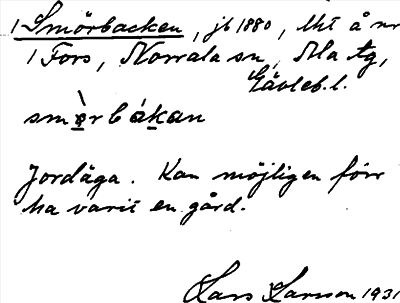 1 Smörbacken, jb 1880, Uht å nr
1 Fors, Norrala sn, Ala tg,
Gävleb. l.
smœ̀rbákan
Jordäga. Kan möjligen förr
ha varit en gård.
Lars Larsson 1931